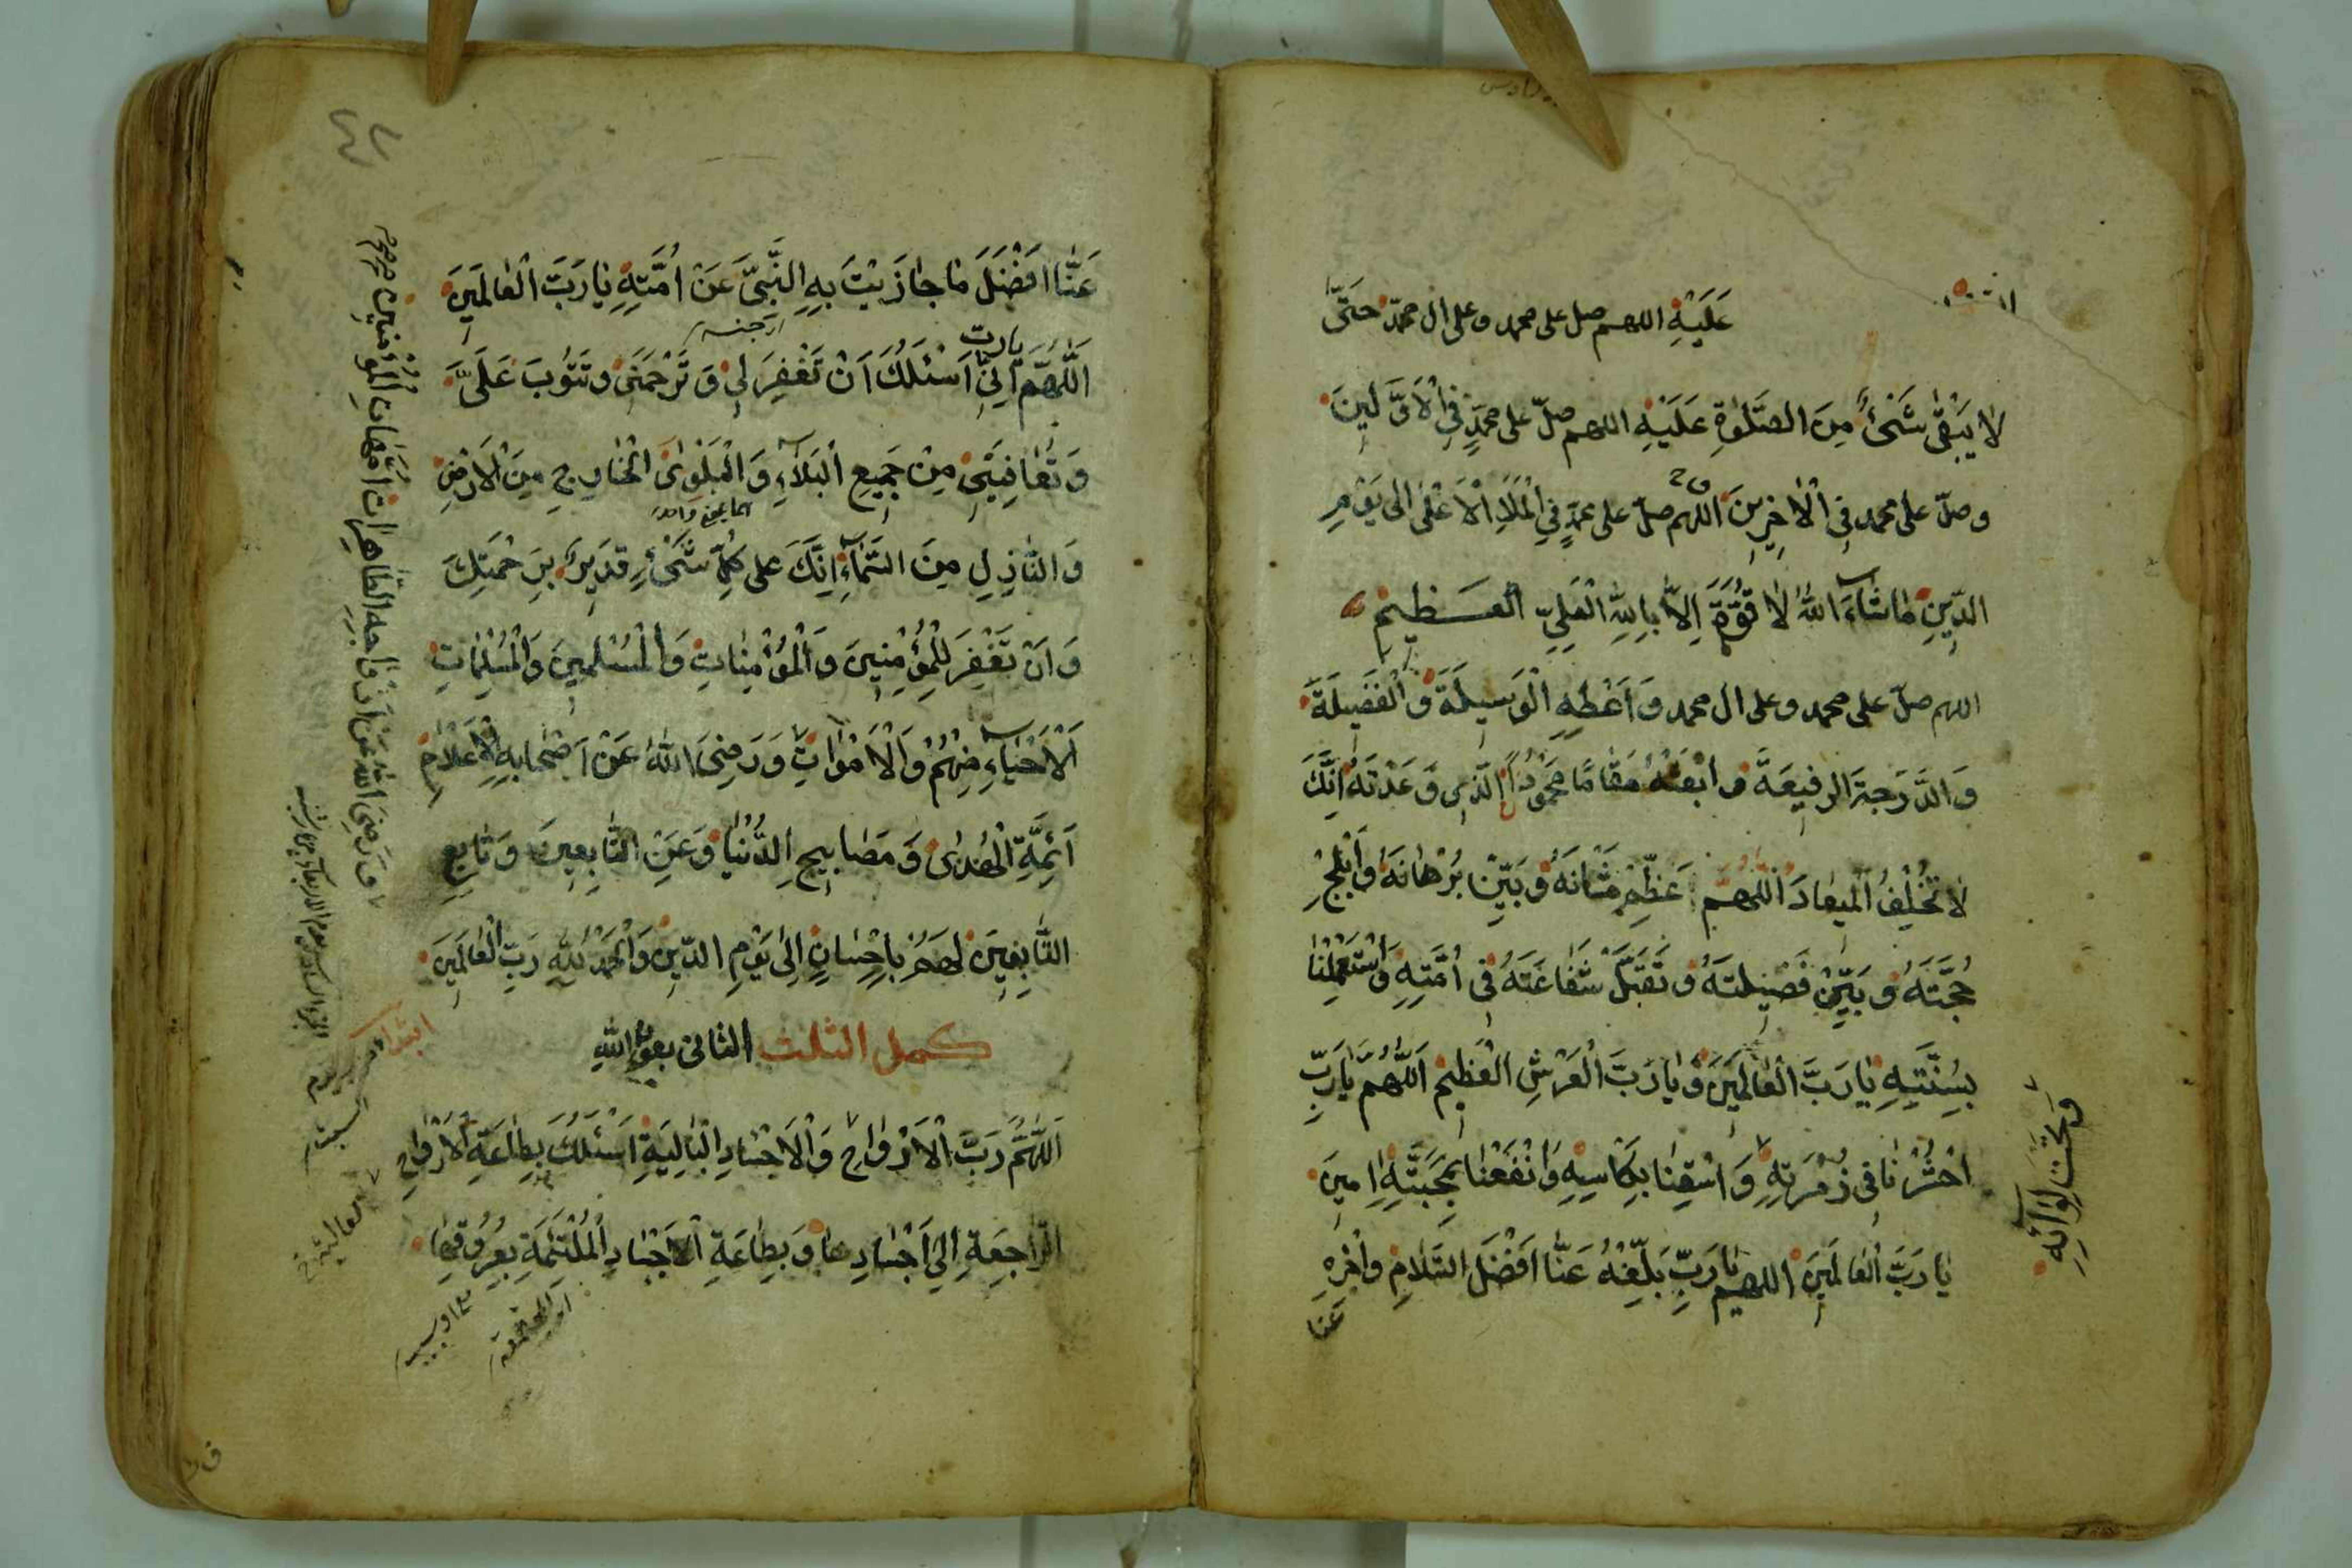 عَلَيْهِ اللهم صل على محمد وعلى ال محمّد حَتّٰى
لا يَبْقٰى شَىْءٌ مِنَ الصَّلٰوةِ عَلَيْهِ اللهم صلّ على محمّدٍ فِى الْاَوَّلِينَ
وصلّ على محمد فِى الْاٰخِرِينَ اللهم صلّ على محمّدٍ فِى الْمَلَاِ الْاَعْلٰى الى يَوْمِ
الدّينِ مٰا شٰاءَ اللّٰهُ لا قُوَّةَ اِلاّٰ بِاللّٰهِ الْعَلِيِّ الْعَظيمِ
اللهم صلّ على محمد وعلى ال محمد وَاَعْطِهِ الْوَسِيلَةَ وَالْفَضِيلَةَ
وَالدَّرَجَةَ الرفيعَةَ وابْعَثْهُ مَقٰامًا مَحْمُودًا الَّذى وَعَدْتَهُ اِنَّكَ
لاٰ تُخْلِفُ الْميعٰادَ اللّٰهُمَّ عَظِّمْ شَانَهُ وَبَيِّنْ بُرْهٰانَهُ وَاَبْلِجْ
حُجَّتَهُ وَبَيِّنْ فَضيلَتَهُ وَتَقَبَّلْ شَفٰاعَتَهُ فى اُمَّتِهِ وَاسْتَعْمِلْنٰا
بِسُنَّتِهِ يٰا رَبَّ الْعٰالَمِينَ وَيٰا رَبَّ الْعَرْشِ الْعَظيمِ اَللّٰهُمَّ يٰا رَبِّ
احْشُرْنٰا فى زُمْرَتِهِ وَاسْقِنٰا بِكَاْسِهِ وَانْفَعْنٰا بِمَحَبَّتِهِ اٰمينَ
وَتَحْتَ لِوٰائِهِ
يٰا رَبَّ الْعٰالَمِينَ اللهم يٰا رَبِّ بَلِّغْهُ عَنّٰا اَفْضَلَ السَّلٰامِ وَاجْزِهِ
عَنّا
عَنّٰا اَفْضَلَ مٰا جٰازَيْتَ بِهِ النَّبِىَّ عَنْ اُمَّتِهِ يٰا رَبَّ الْعٰالَمينَ
اَللّٰهُمَّ يا رب اِنّى اَسْئَلُكَ اَنْ تَغْفِرَ لى وَتَرْحَمَنى وَتَتُوبَ عَلَىَّ
وَتُعٰافِيَنى مِنْ جَميعِ الْبَلاٰءِ وَالْبَلْوٰىٰ الْخٰارِجِ مِنَ الْاَرْضِ
وَالنّٰازِلِ مِنَ السَّمٰاءِ اِنَّكَ عَلى كُلِّ شَىْءٍ قَديرٌ بِرَحْمَتِكَ
وَاَنْ تَغْفِرَ لِلْمُؤْمِنِينَ وَالْمُؤْمِنٰاتِ وَالْمُسْلِمينَ وَالْمُسْلِمٰاتِ
اَلْاَحْيٰاءِ مِنْهُمْ وَالْاَمْوٰاتِ وَرَضِىَ اللّٰهُ عَنْ اَصْحٰابِهِ الْاَعْلاٰمِ
وَرَضِىَ اللّٰهُ عَنْ اَزْوٰاجِهِ الطّٰاهِرٰاتِ اُمَّهٰاتِ الْمُؤْمِنينَ
اَئِمَّةِ الْهُدٰى وَمَصٰابيحِ الدُّنْيٰا وَعَنِ التّٰابِعينَ وَتٰابِعِ
التّٰابِعينَ لَهُمْ بِاِحْسٰانٍ اِلى يَوْمِ الدّينِ وَالْحَمْدُ لِلّٰهِ رَبِّ الْعٰالَمينَ
كمل الثلث الثانى بعون الله
اَللّٰهُمَّ رَبَّ الْاَرْوٰاحِ وَالْاَجْسٰادِ الْبٰالِيَةِ اَسْئَلُكَ بِطٰاعَةِ الْاَرْوٰاحِ
الرّٰاجِعَةِ اِلى اَجْسٰادِهٰا وَبِطٰاعَةِ الْاَجْسٰادِ الْمُلْتَئِمَةِ بِعُرُوقِهٰا